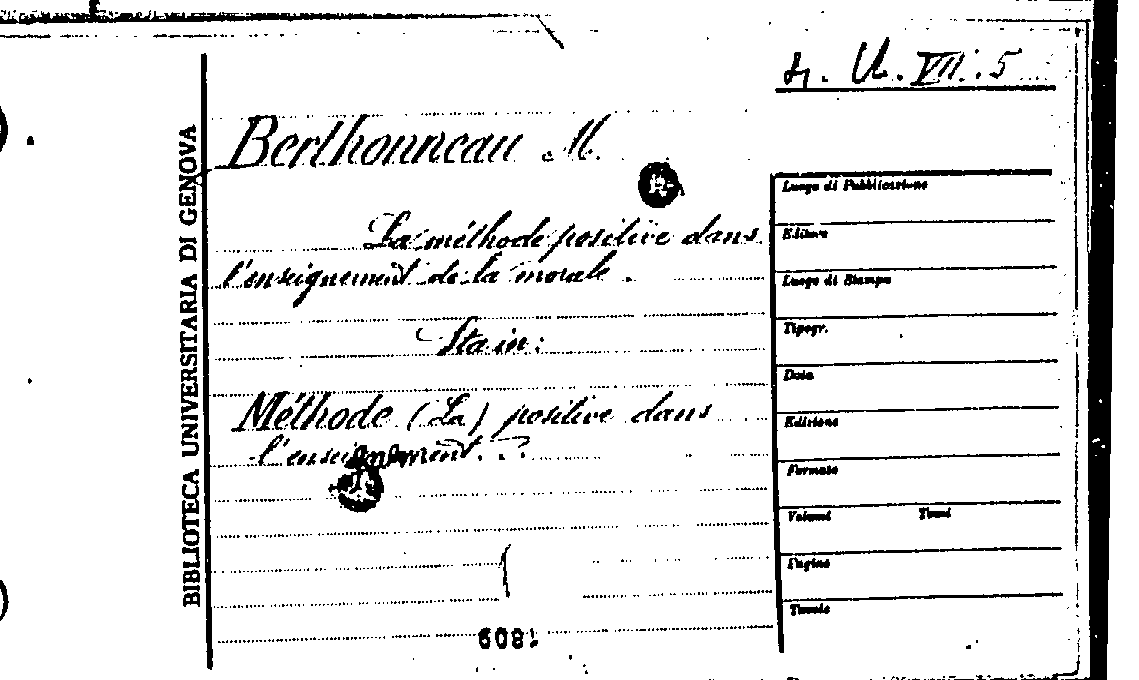 U. VII. 5
BIBLIOTECA UNIVERSITARIA DI GENOVA
Berthonneau M.
La méthode positive dans
l'enseignement de la morale.
Sta in:
Méthode (La) positive dans
l'enseignement...
Luogo di Pubblicazione
Editore
Luogo di Stampa
Tipogr.
Data
Edizione
Formato
Volumi Tomi
Pagine
Tavole